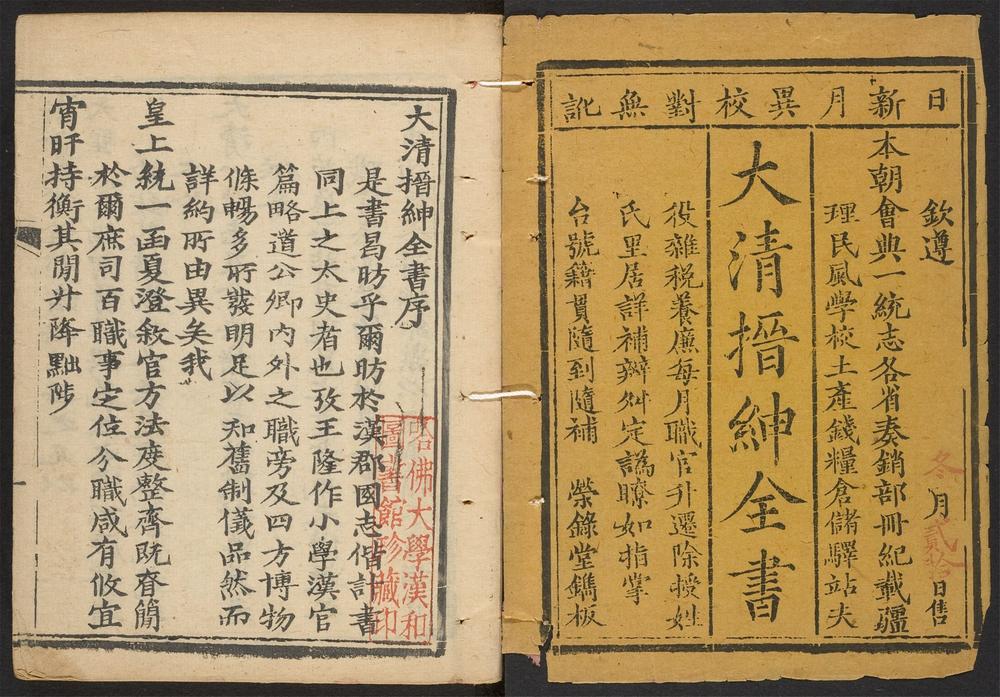 日新月異校對無訛
欽遵
本朝會典一統志各省奏銷部冊紀載疆
理民風學校土產錢糧倉儲驛站夫
冬月貳拾日售
大清搢紳全書
役雜稅養廉每月職官升遷除授姓
氏里居詳補辦舛定譌瞭如指掌
台號籍貫隨到隨補 榮錄堂鐫板
大清搢紳全書序
是書昌昉乎爾昉於漢郡國志偕計書
同上之太史者也攷王隆作小學漢官
篇略道公卿內外之職旁及四方博物
條暢多所發明足以知舊制儀品然而
詳約所由異矣我
皇上統一函夏澄敘官方法度整齊既眘簡
於爾庶司百職事定位分職咸有攸宜
宵旰持衡其閒升降黜陟
哈佛大學漢和
圖書館珍藏印